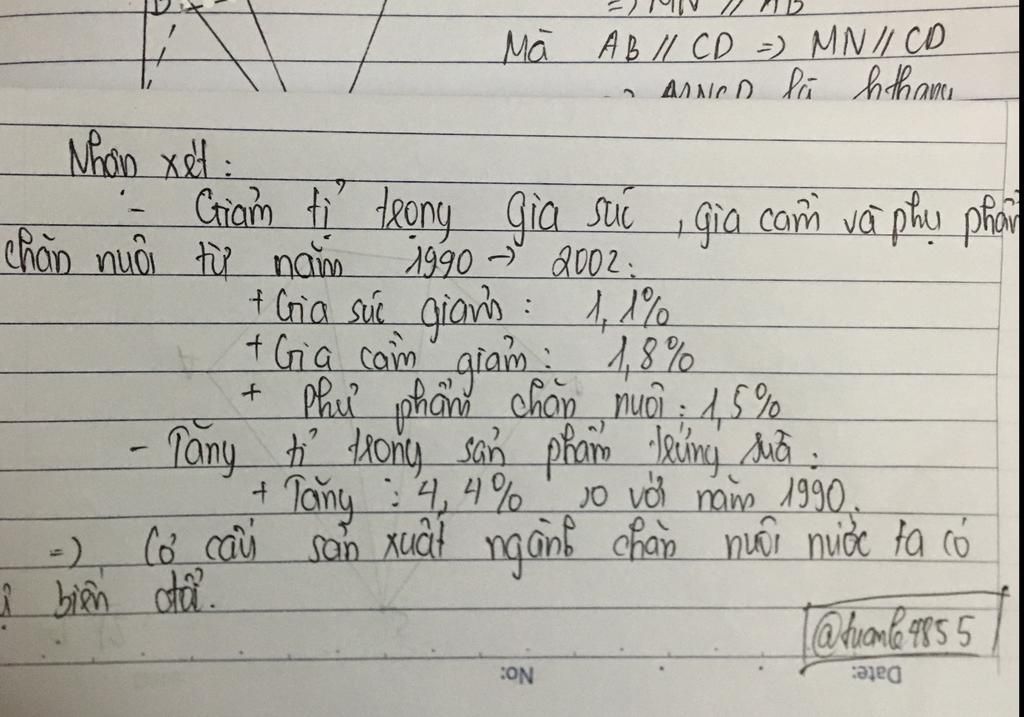 =) MN // AB
Mà AB // CD => MN // CD
Nhận xét:
- Giảm tỉ trọng gia súc, gia cầm và phụ phẩm
chăn nuôi từ năm 1990 → 2002:
+ Gia súc giảm: 1,1%
+ Gia cầm giảm: 1,8%
+ Phụ phẩm chăn nuôi: 1,5%
- Tăng tỉ trọng sản phẩm trứng sữa:
+ Tăng: 4,4% so với năm 1990.
=) Cơ cấu sản xuất ngành chăn nuôi nước ta có
biến đổi.
No:
Date: